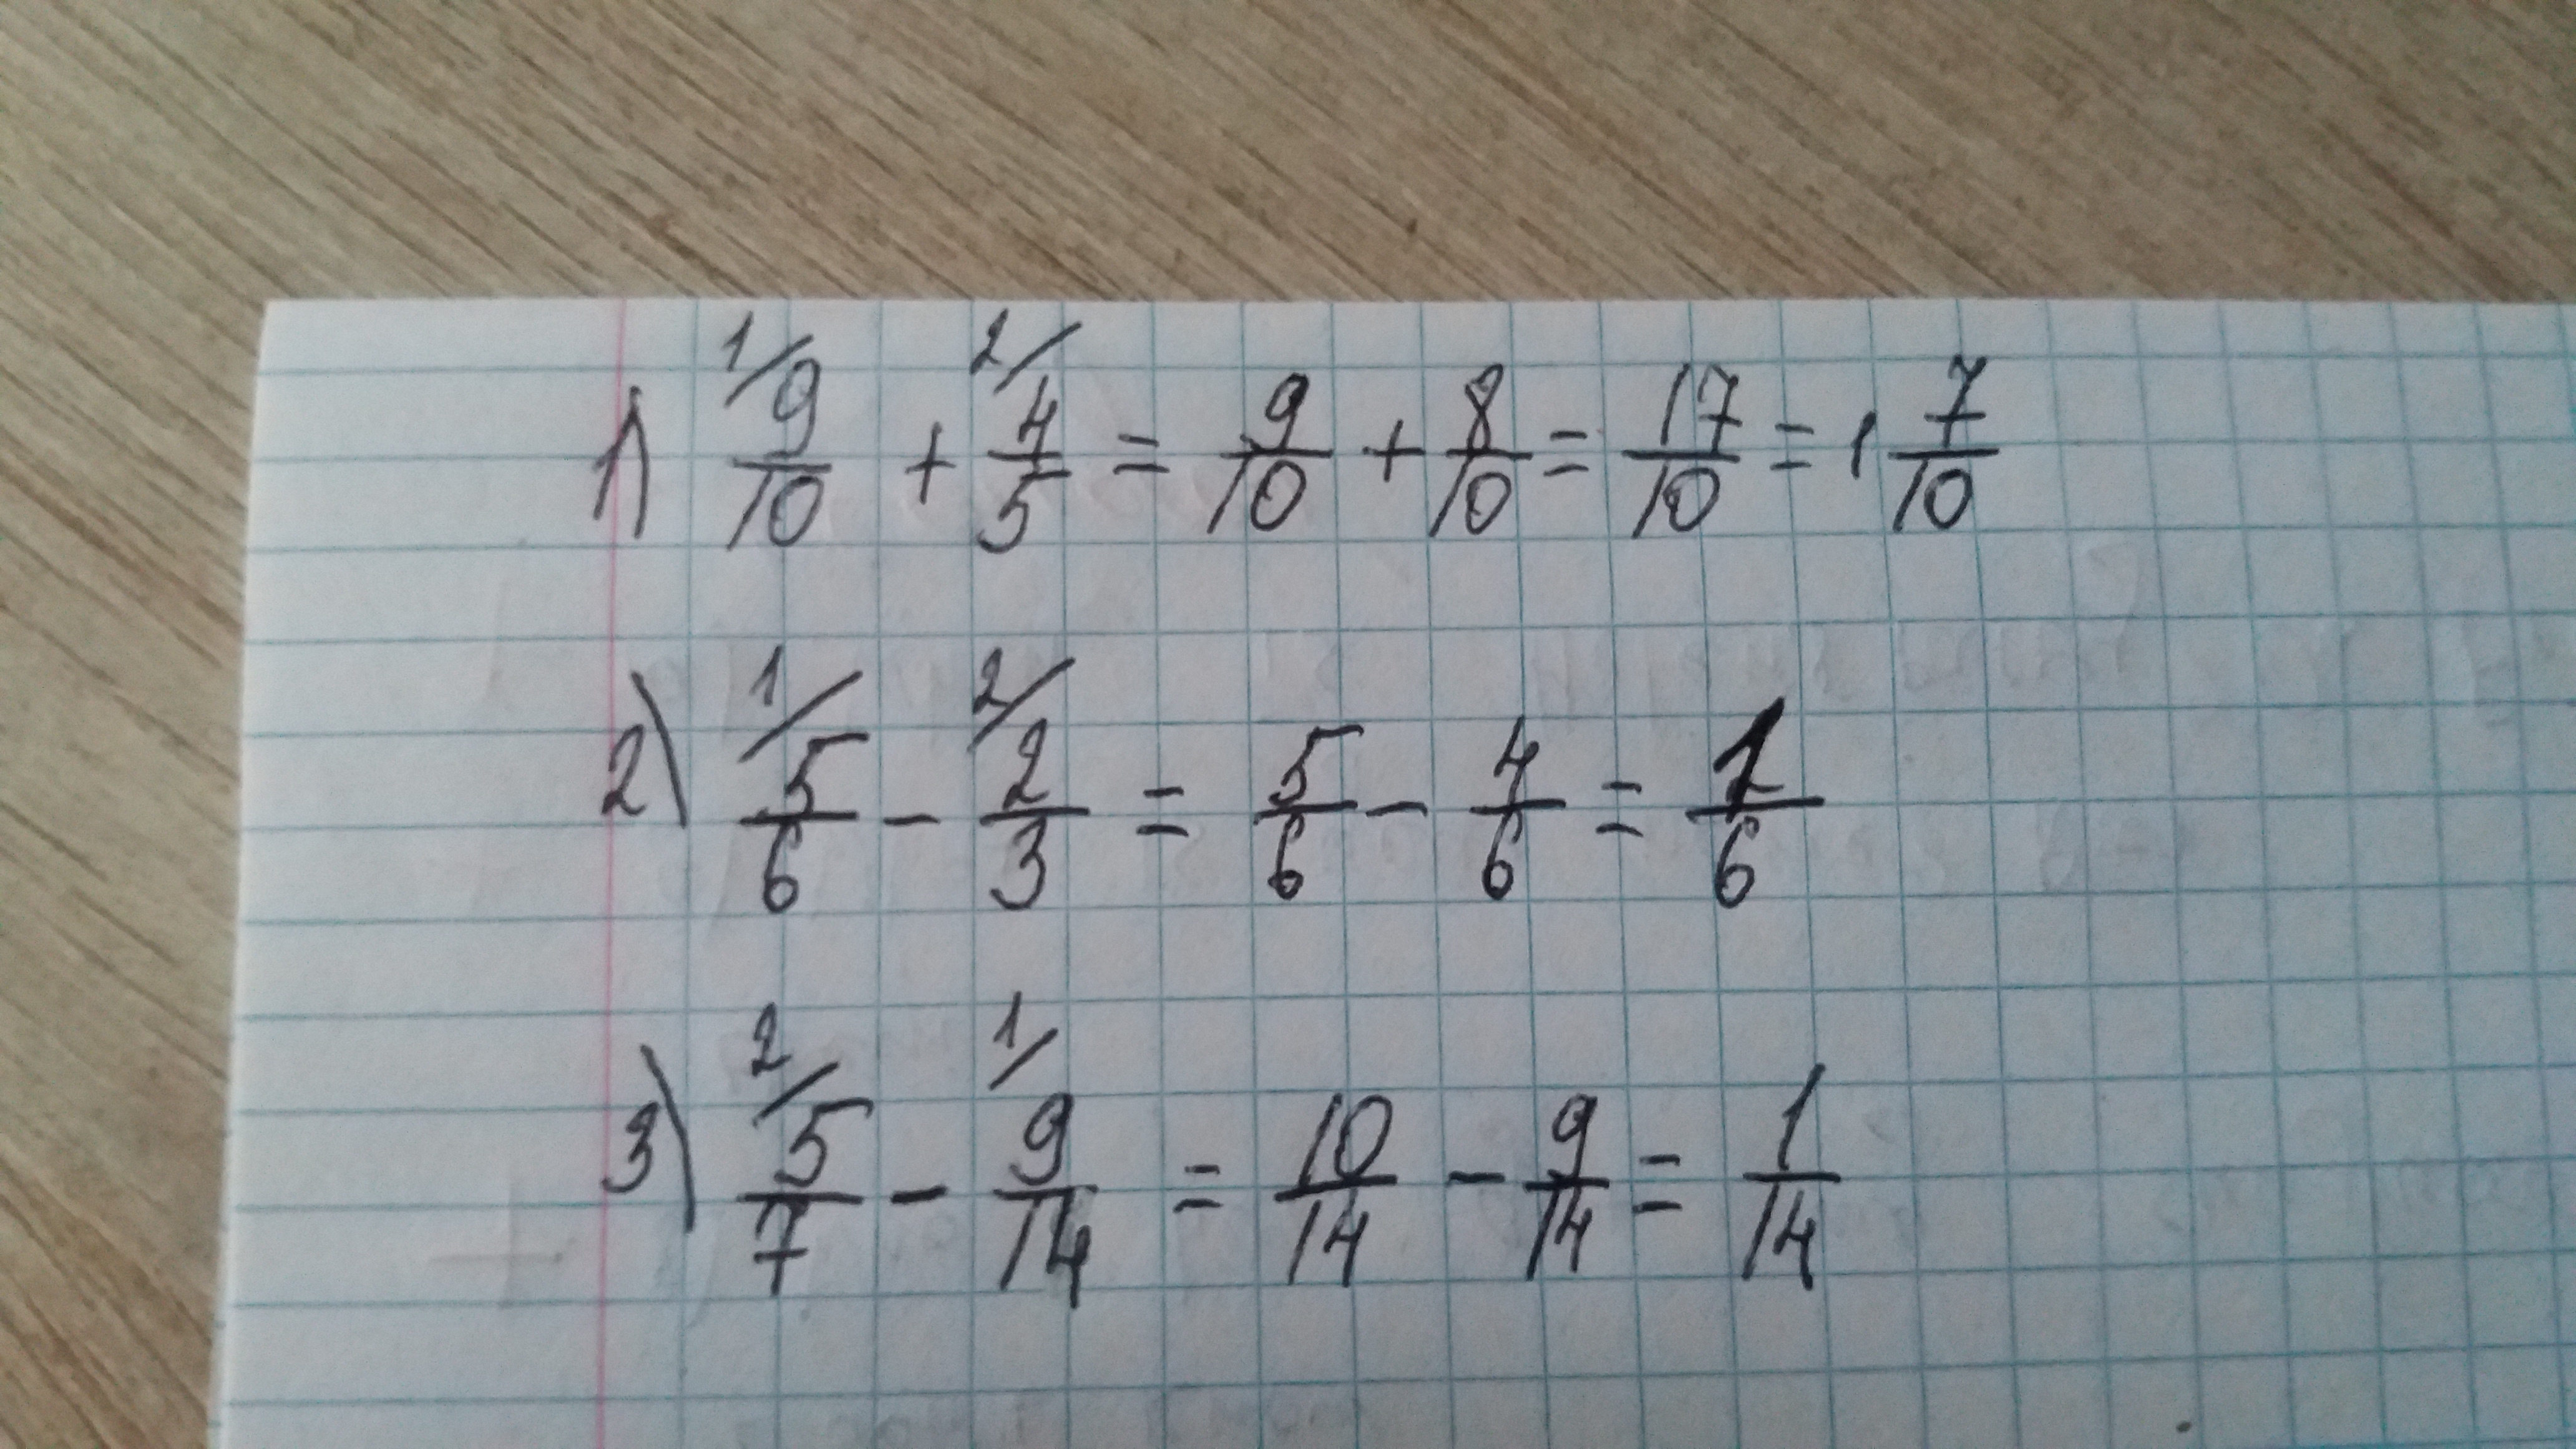 1) 1/ 9/10 + 2/ 4/5 = 9/10 + 8/10 = 17/10 = 1 7/10
2) 1/ 5/6 - 2/ 2/3 = 5/6 - 4/6 = 1/6
3) 2/ 5/7 - 1/ 9/14 = 10/14 - 9/14 = 1/14